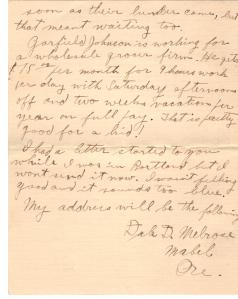 soon as their lumber came, but
that meant waiting too.
Garfield Johnson is working for
a wholesale grocer firm. He gets
$75 per month for 9 hours work
per day with Saturday afternoons
off and two weeks vacation per
year on full pay. That is pretty
good for a kid!
I had a letter started to you
while I was in Portland but I
wont send it now. I wasn't feeling
good and it sounds too blue.
My address will be the following
Dale D. Melrose
Mabel
Ore.